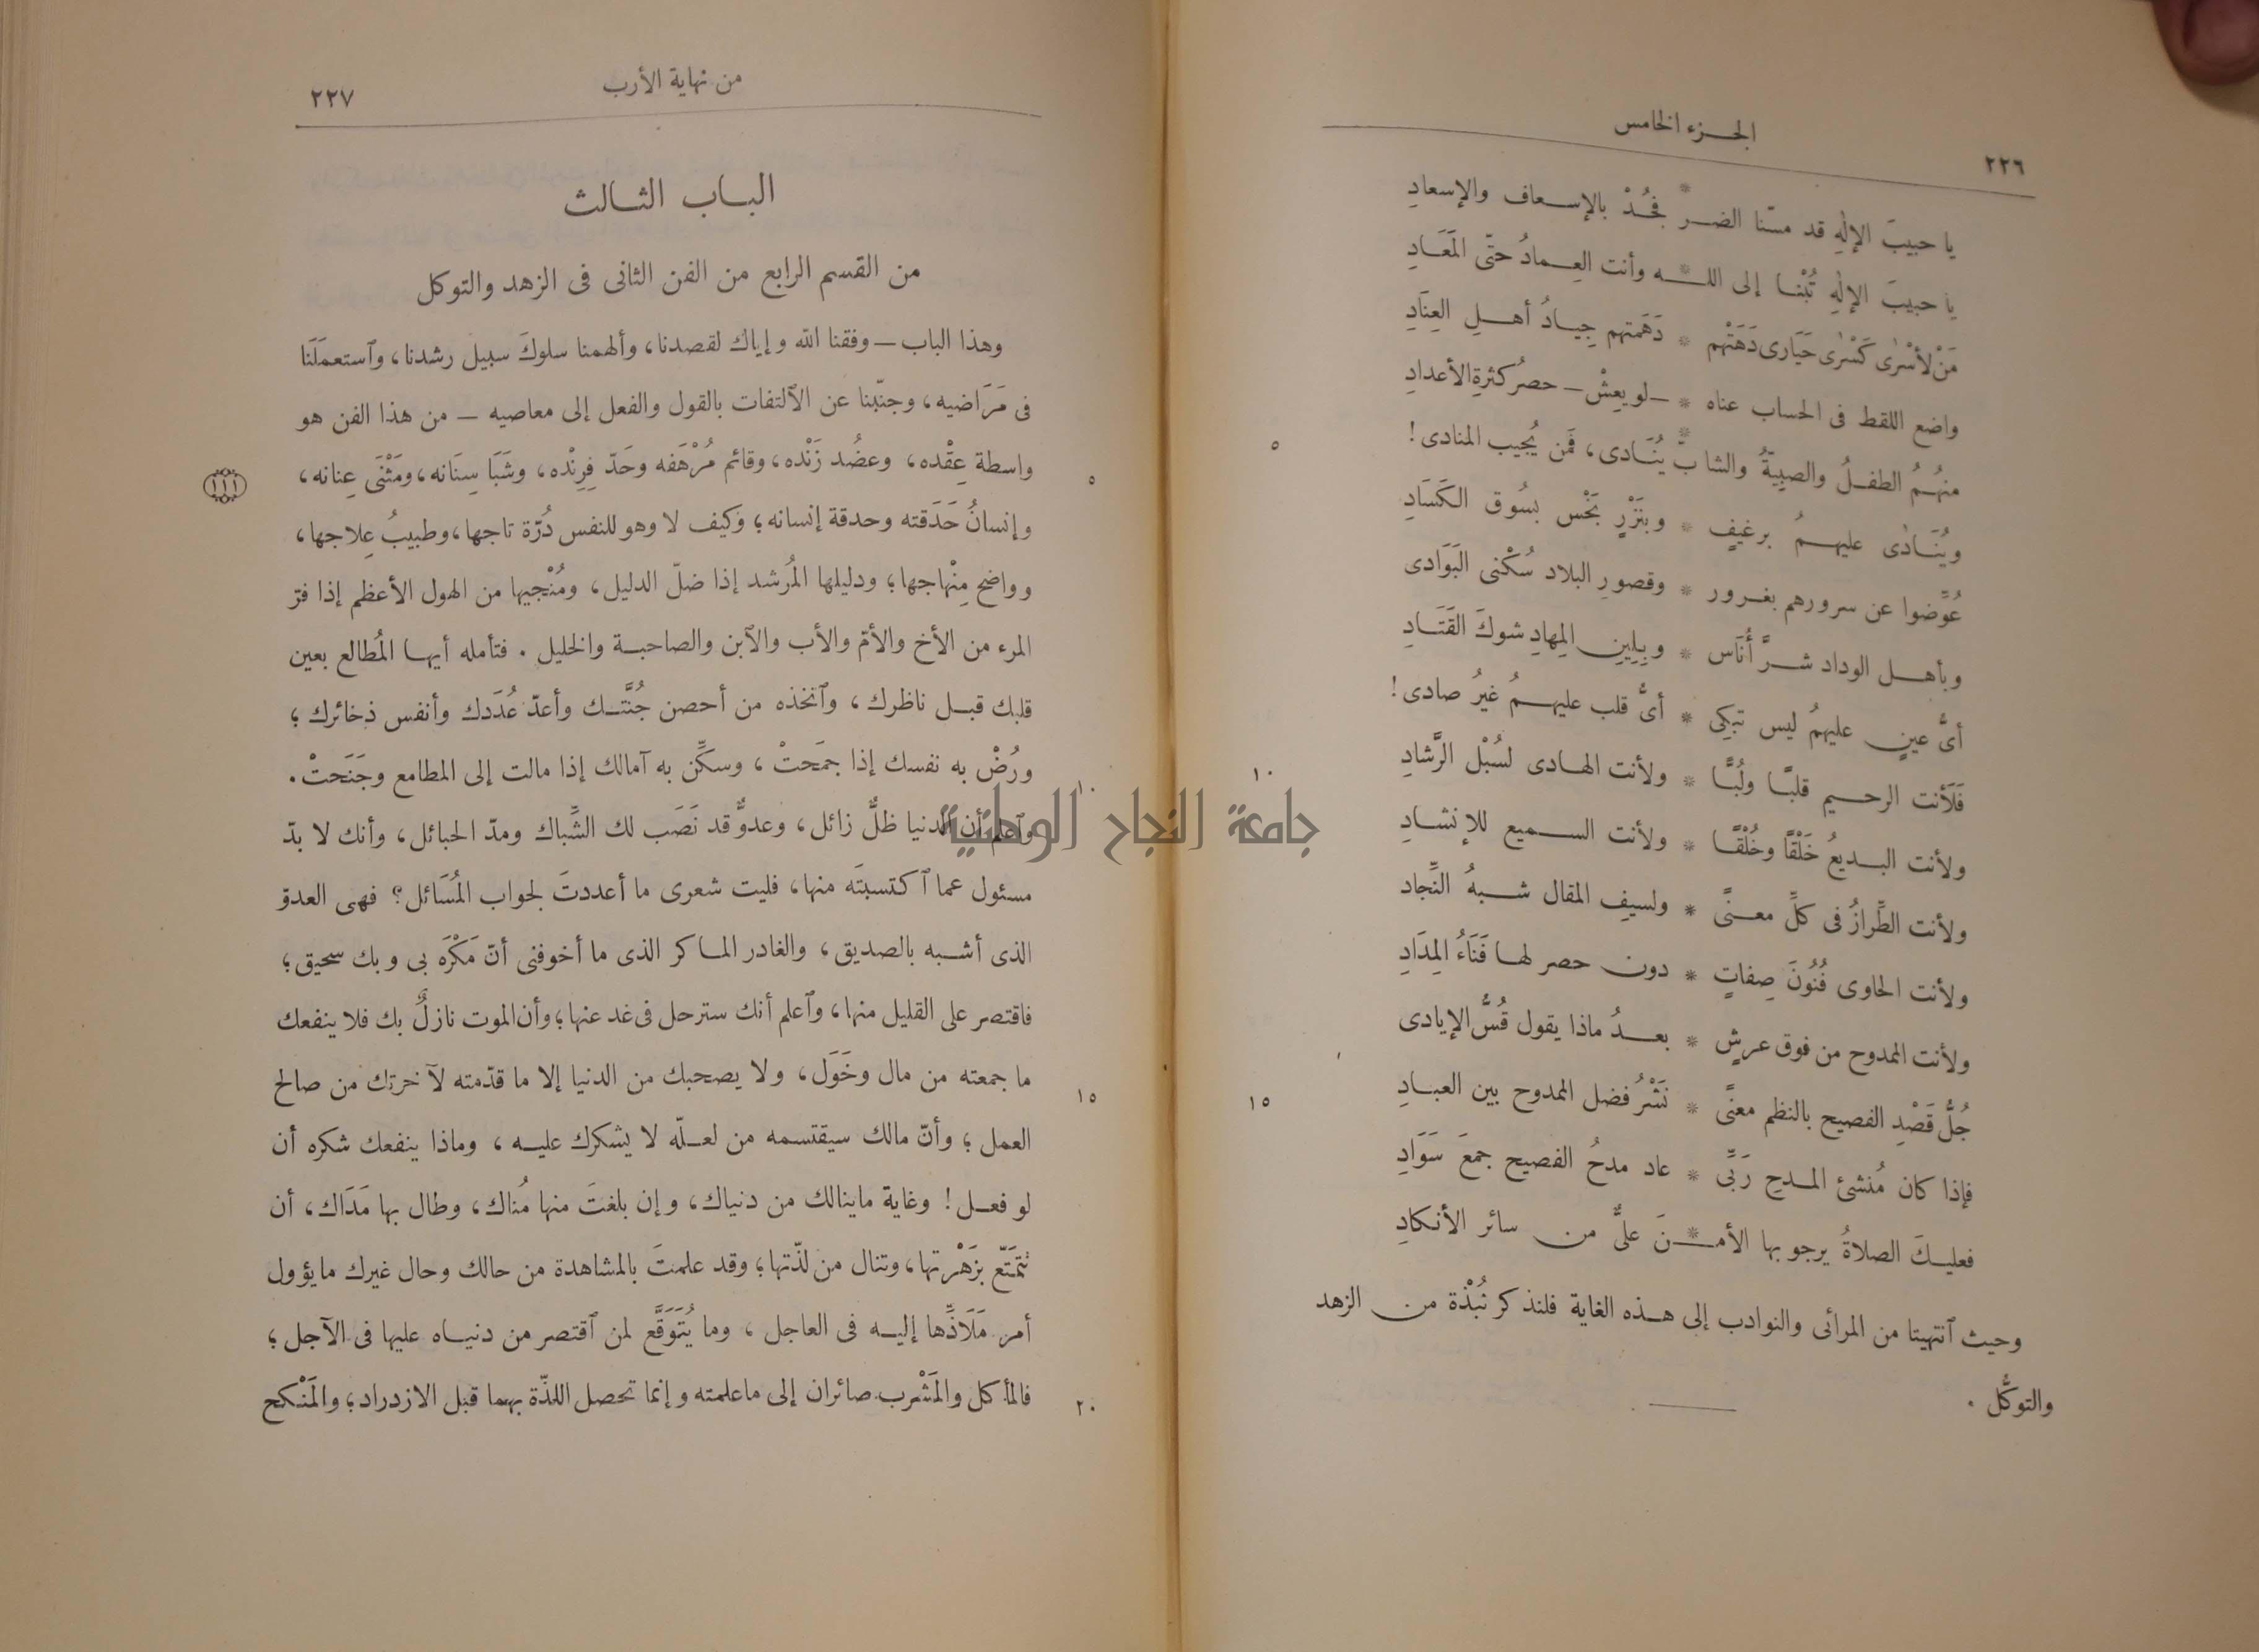 ٢٢٦
الجزء الخامس
يا حبيبَ الإلٰهِ قد مسّنا الضر * فَجُدْ بالإسعاف والإسعادِ
يا حبيبَ الإلٰهِ تُبْنا إلى اللـه * وأنت العِمادُ حتّى المَعَادِ
مَنْ لأَسْرٰى كَسْرٰى حَيَارى دَهَتْهم * دَهَمتهم جِيادُ أهلِ العِنَادِ
واضع اللقط فى الحساب عناه * — لو يعِشْ — حصرُ كثرةِ الأعدادِ
منهُمُ الطفلُ والصبِيّةُ والشابّ * يُنَادى، فَمن يُجيب المنادى!
٥
ويُنَادٰى عليهمُ برغيفٍ * وبنَزْرٍ بَخْس بسُوق الكَسَادِ
عُوِّضوا عن سرورهم بغرور * وقصورِ البلاد سُكْنى البَوَادى
وبأهل الوداد شرَّ أُنَاس * وبِلِينِ المِهادِ شوكَ القَتَادِ
أىُّ عينٍ عليهمُ ليس تبكِى * أىُّ قلب عليهمُ غيرُ صادى!
فَلَأنت الرحيم قلبًا ولُبًّا * ولأنت الهادى لسُبْل الرَّشادِ
١٠
ولأنت البديعُ خَلْقًا وخُلْقًا * ولأنت السميع للإنشادِ
ولأنت الطِّرازُ فى كلِّ معنًى * ولسيفِ المقال شبهُ النِّجاد
ولأنت الحاوى فُنُونَ صِفاتٍ * دون حصر لها فَنَاءُ المِدَادِ
ولأنت الممدوح من فوق عرشٍ * بعدُ ماذا يقول قُسُّ الإيادى
جُلُّ قَصْدِ الفصيح بالنظم معنًى * نَشْرُ فضل الممدوح بين العبادِ
١٥
فإذا كان مُنشئ المدح رَبِّى * عاد مدحُ الفصيح جمعَ سَوَادِ
فعليكَ الصلاةُ يرجو بها الأمـ * ـنَ علىٌّ من سائر الأنكادِ
وحيث ٱنتهيتا من المرائى والنوادب إلى هذه الغاية فلنذكر نُبْذة من الزهد
والتوكُّل .
من نهاية الأرب
٢٢٧
الباب الثالث
من القسم الرابع من الفن الثانى فى الزهد والتوكل
وهذا الباب — وفقنا الله وإياك لقصدنا، وألهمنا سلوكَ سبيل رشدنا، وٱستعمَلَنا
فى مَرَاضيه، وجنّبنا عن الٱلتفات بالقول والفعل إلى معاصيه — من هذا الفن هو
واسطة عِقْده، وعضُد زَنْده، وقائم مُرْهَفه وحَدّ فِرِنْده، وشَبَا سِنَانه، ومَثْنَى عِنانه،
٥
١١١
وإنسانُ حَدَقته وحدقة إنسانه؛ وكيف لا وهو للنفس دُرّة تاجها، وطبيبُ عِلاجها،
وواضح مِنْهاجها؛ ودليلها المُرشد إذا ضلّ الدليل، ومُنْجيها من الهول الأعظم إذا فرّ
المرء من الأخ والأمّ والأب والٱبن والصاحبة والخليل. فتأمله أيها المُطالع بعين
قلبك قبل ناظرك، وٱتخذه من أحصن جُنَّتك وأعدّ عُدَدك وأنفس ذخائرك؛
ورُضْ به نفسك إذا جمَحتْ، وسكِّن به آمالك إذا مالت إلى المطامع وجَنَحتْ.
١٠
وٱعلم أن الدنيا ظلٌّ زائل، وعدوٌّ قد نَصَب لك الشِّباك ومدّ الحبائل، وأنك لا بدّ
مسئول عما ٱكتسبتَه منها، فليت شعرى ما أعددتَ لجواب المُسَائل؟ فهى العدوّ
الذى أشبه بالصديق، والغادر الماكر الذى ما أخوفنى أنّ مَكْرَه بى وبك سحيق؛
فاقتصر على القليل منها، وٱعلم أنك سترحل فى غد عنها؛ وأن الموت نازلٌ بك فلا ينفعك
ما جمعته من مال وخَوَل، ولا يصحبك من الدنيا إلا ما قدّمته لآخرتك من صالح
١٥
العمل؛ وأنّ مالك سيقتسمه من لعلّه لا يشكرك عليه، وماذا ينفعك شكره أن
لو فعل! وغاية ما ينالك من دنياك، وإن بلغتَ منها مُناك، وطال بها مَدَاك، أن
تتمَتّع بزَهْرتها، وتنال من لذّتها؛ وقد علمتَ بالمشاهدة من حالك وحال غيرك ما يؤول
أمر مَلَاذِّها إليه فى العاجل، وما يُتَوَقَّع لمن ٱقتصر من دنياه عليها فى الآجل؛
فالمأكل والمَشْرب صائران إلى ما علمته وإنما تحصل اللذّة بهما قبل الازدراد؛ والمَنْكح
٢٠
جامعة النجاح الوطنية